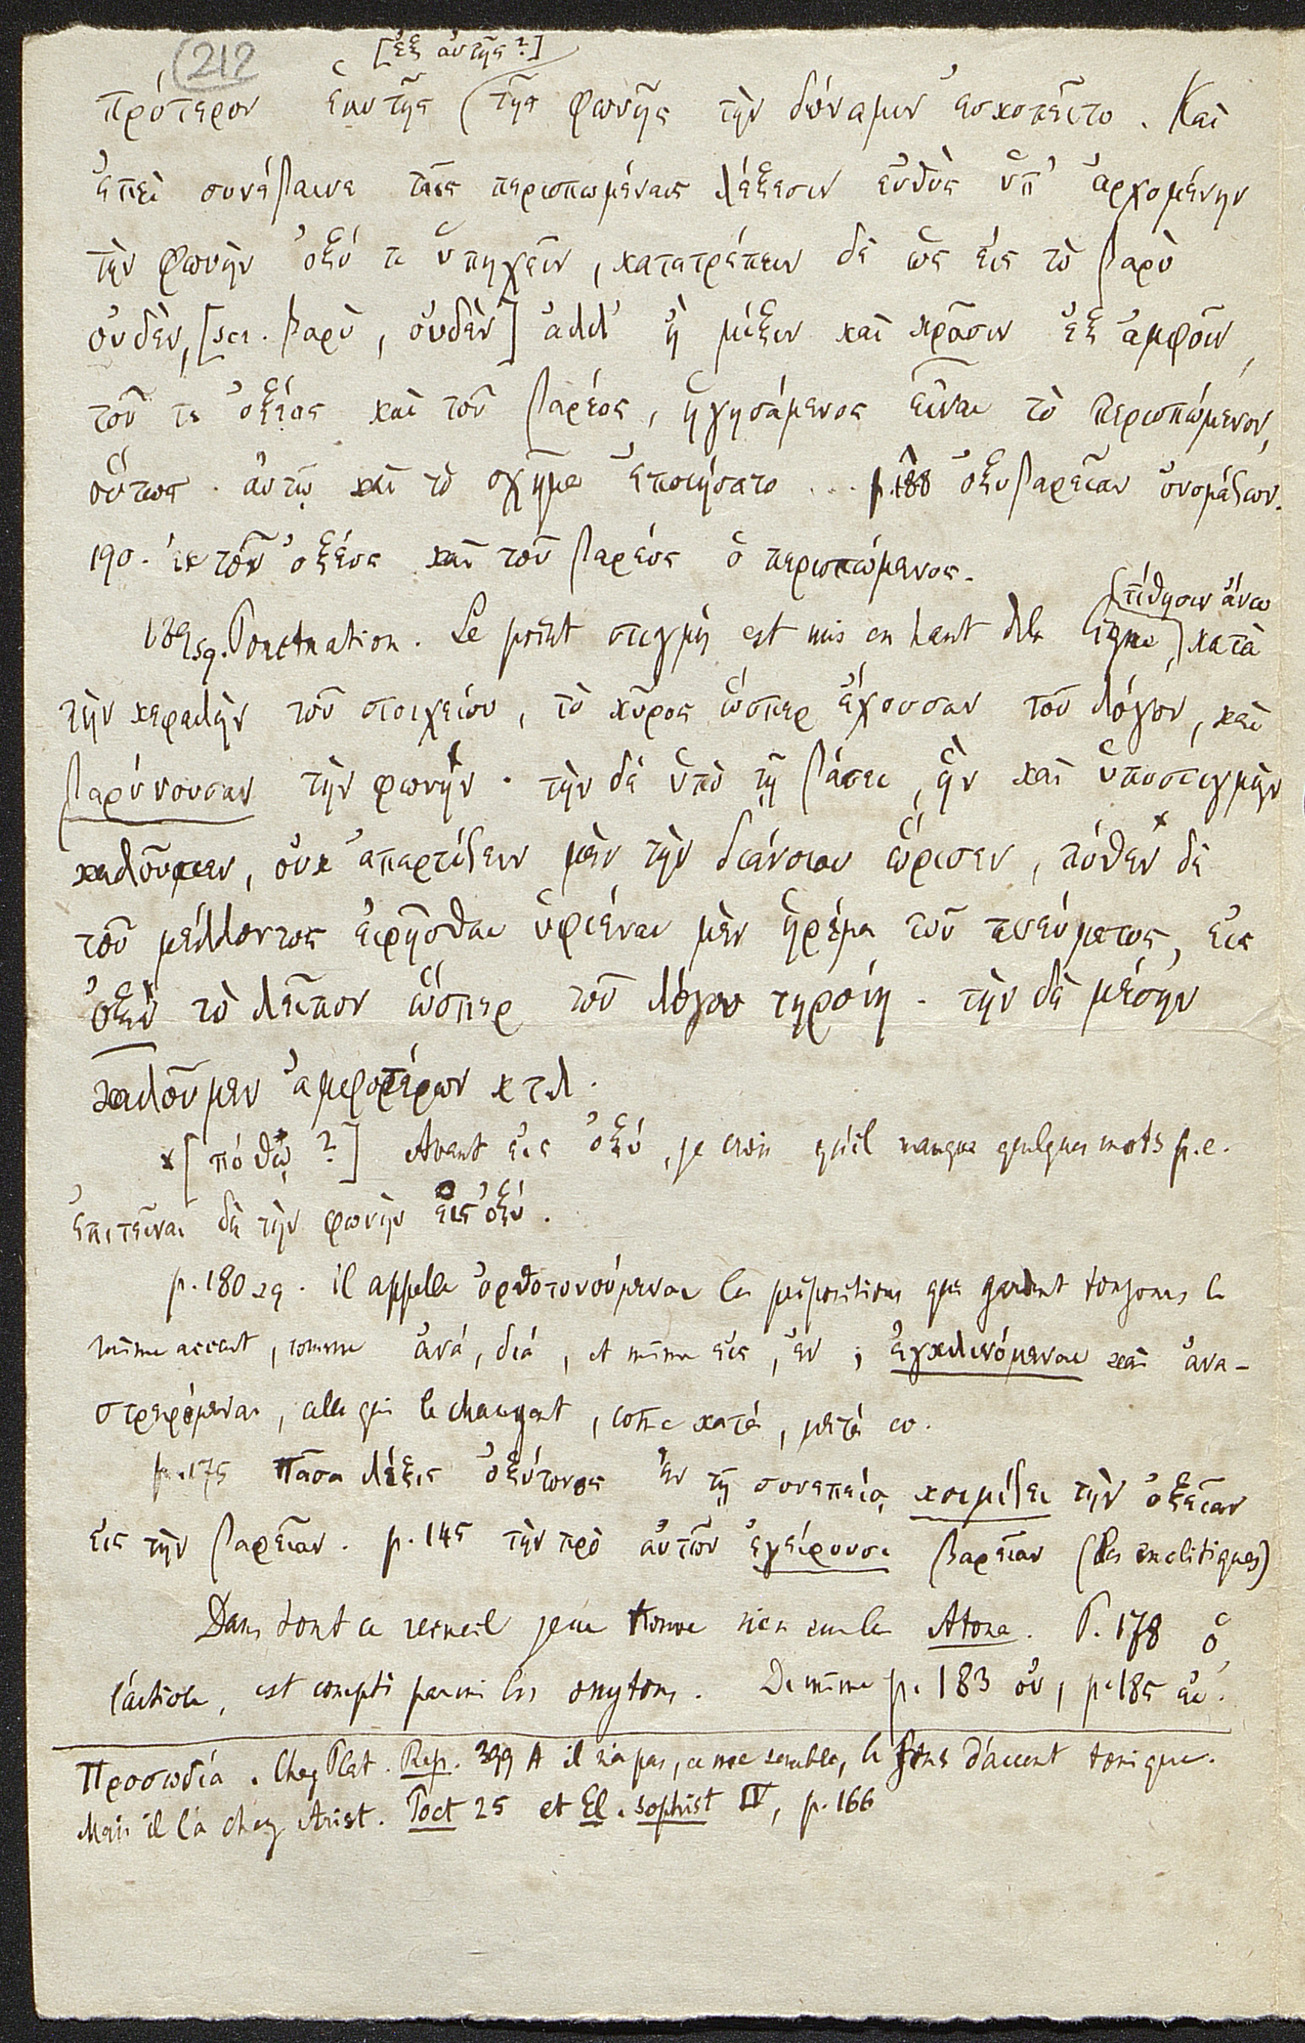 (212
[ἐξ αὐτῆς?]
πρότερον ἑαυτῆς (τῆς φωνῆς τὴν δύναμιν ἐσκοπεῖτο. Καὶ
ἐπεὶ συνέβαινε ταῖς περισπωμέναις λέξεσιν εὐθὺς ὑπ' ἀρχομένην
τὴν φωνὴν ὀξύ τι ὑπηχεῖν, κατατρέπειν δὲ ὡς εἰς τὸ βαρὺ
οὐδὲν, [scr. βαρὺ, οὐδὲν] ἀλλ' ἢ μίξιν καὶ κρᾶσιν ἐξ ἀμφοῖν,
τοῦ τε ὀξέος καὶ τοῦ βαρέος, ἡγησάμενος εἶναι τὸ περισπώμενον,
οὕτως αὐτῷ καὶ τὸ σχῆμα ἐποιήσατο... p. 188 ὀξυβαρεῖαν ὀνομάζων.
190. ἐκ τοῦ ὀξέος καὶ τοῦ βαρέος ὁ περισπώμενος.
189 sq. Ponctuation. Le point στιγμὴ est mis en haut de la ligne, (τίθησιν ἄνω) κατὰ
τὴν κεφαλὴν τοῦ στοιχείου, τὸ κῦρος ὥσπερ ἔχουσαν τοῦ λόγου, καὶ
βαρύνουσαν τὴν φωνήν. τὴν δὲ ὑπὸ τῇ βάσει, ἣν καὶ ὑποστιγμὴν
καλοῦμεν, οὐκ ἀπαρτίζειν μὲν τὴν διάνοιαν ὥρισεν, πόθεν* δὲ
τοῦ μέλλοντος εἰρῆσθαι ὑφιέναι μὲν ἠρέμα τοῦ πνεύματος, εἰς
ὀξὺ τὸ λεῖπον ὥσπερ τοῦ λόγου τηροίη. τὴν δὲ μέσην
καλοῦμεν ἀμφοτέρων κτλ.
*[πόθῳ?] Avant εἰς ὀξύ, je crois qu'il manque quelques mots p.e.
ἐπιτεῖναι δὲ τὴν φωνὴν εἰς ὀξύ.
p. 180 sq. il appelle ὀρθοτονούμεναι les prépositions qui gardent toujours le
même accent, comme ἀνά, διά, et même εἰς, ἐν; ἐγκλινόμεναι καὶ ἀνα-
στρεφόμεναι, celles qui le changent, comme κατά, μετά
p. 175 Πᾶσα λέξις ὀξύτονος ἐν τῇ συνεπείᾳ κοιμίζει τὴν ὀξεῖαν
εἰς τὴν βαρεῖαν. p. 145 τὴν πρὸ αὐτῶν ἐγείρουσι βαρεῖαν (les enclitiques)
Dans tout ce recueil je ne trouve rien sur les Atona. P. 178 ὁ
l'article, est compté parmi les oxytons. De même p. 183 οὐ, p. 185 εἰ.
Προσῳδία. Chez Plat. Rep. 399 A il n'a pas, ce me semble, le sens d'accent tonique.
Mais il l'a chez Arist. Poet 25 et El. sophist IV, p. 166